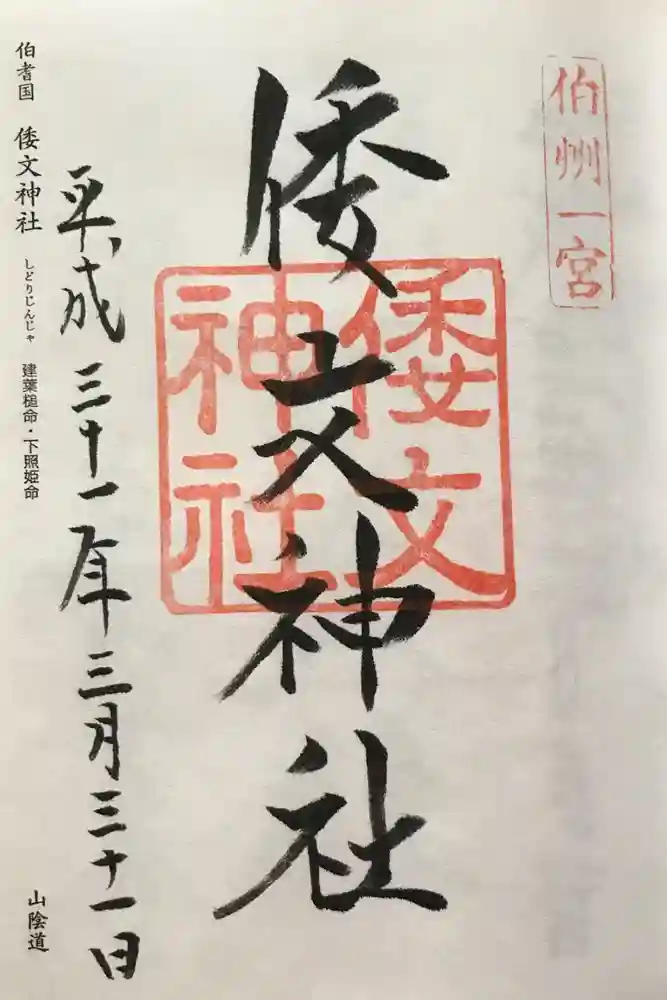 伯州一宮
倭文神社
倭文
神社
平成三十一年三月三十一日
伯耆国 倭文神社 しとりじんじゃ 建葉槌命・下照姫命
山陰道